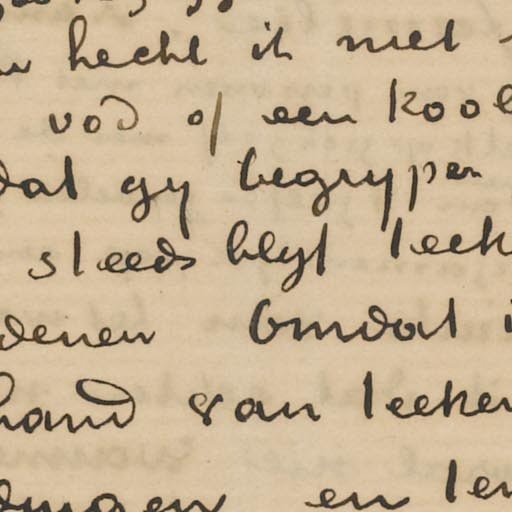 hecht ik met
vod of een kool
dat gy begrypen
steeds blyf teek
denen Omdat i
hand van teeken
en ten